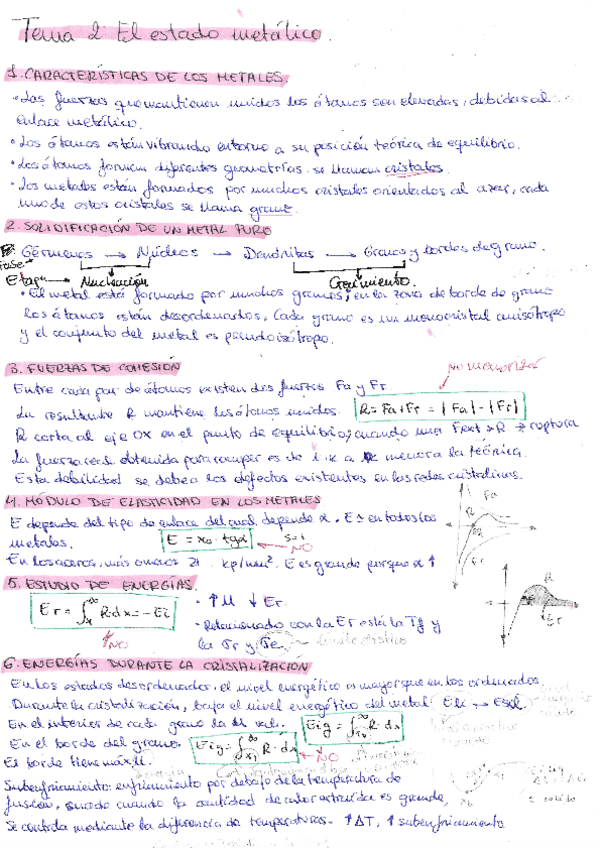 Tema 2: El estado metálico.
1. CARACTERÍSTICAS DE LOS METALES.
• Las fuerzas que mantienen unidos los átomos son elevadas, debidas al
enlace metálico.
• Los átomos están vibrando entorno a su posición teórica de equilibrio.
• Los átomos forman diferentes geometrías. se llaman cristales.
• Los metales están formados por muchos cristales orientados al azar, cada
uno de estos cristales se llama grano.
2. SOLIDIFICACIÓN DE UN METAL PURO
Gérmenes → Núcleos → Dendritas → Granos y bordes de grano.
Fase
Etapa → Nucleación Crecimiento.
• El metal está formado por muchos granos, en la zona de borde de grano
los átomos están desordenados. Cada grano es un monocristal anisótropo
y el conjunto del metal es pseudoisótropo.
3. FUERZAS DE COHESIÓN
No memorizar
Entre cada par de átomos existen dos fuerzas Fa y Fr
La resultante R mantiene los átomos unidos. R = Fa + Fr = |Fa| - |Fr|
R corta al eje OX en el punto de equilibrio, cuando una Fext > R → ruptura
La fuerza real obtenida para romper es de menora la teórica.
Esta debilidad se debea los defectos existentes en las redes cristalinas.
4. MÓDULO DE ELASTICIDAD EN LOS METALES
E depende del tipo de enlace del cual depende α. E en todos los
metales. E = x₀ · tgα NO
En los aceros, más o menos 21 kp/mm². E es grande porque α ↑
Fa
R
Fr
5. ESTUDIO DE ENERGÍAS.
Er = ∫ₓ^∞ R·dx = -Ei
NO
• ↑M ↓Er.
• Relacionado con la Er está la Tf y
la σr y σe. límite elástico
R
Er
6. ENERGÍAS DURANTE LA CRISTALIZACIÓN
En los estados desordenados el nivel energético es mayor que en los ordenados
Durante la cristalización, baja el nivel energético del metal Elíq → Esol.
En el interior de cada grano la M val. Eig = ∫ₓ₀^∞ R·dx
En el borde del grano. Eig = ∫ₓ₁^∞ R·dx NO
El borde tiene más M.
Subenfriamiento: enfriamiento por debajo de la temperatura de
fusión, sucede cuando la cantidad de calor extraída es grande
Se controla mediante la diferencia de temperaturas. ↑ΔT, ↑ subenfriamiento